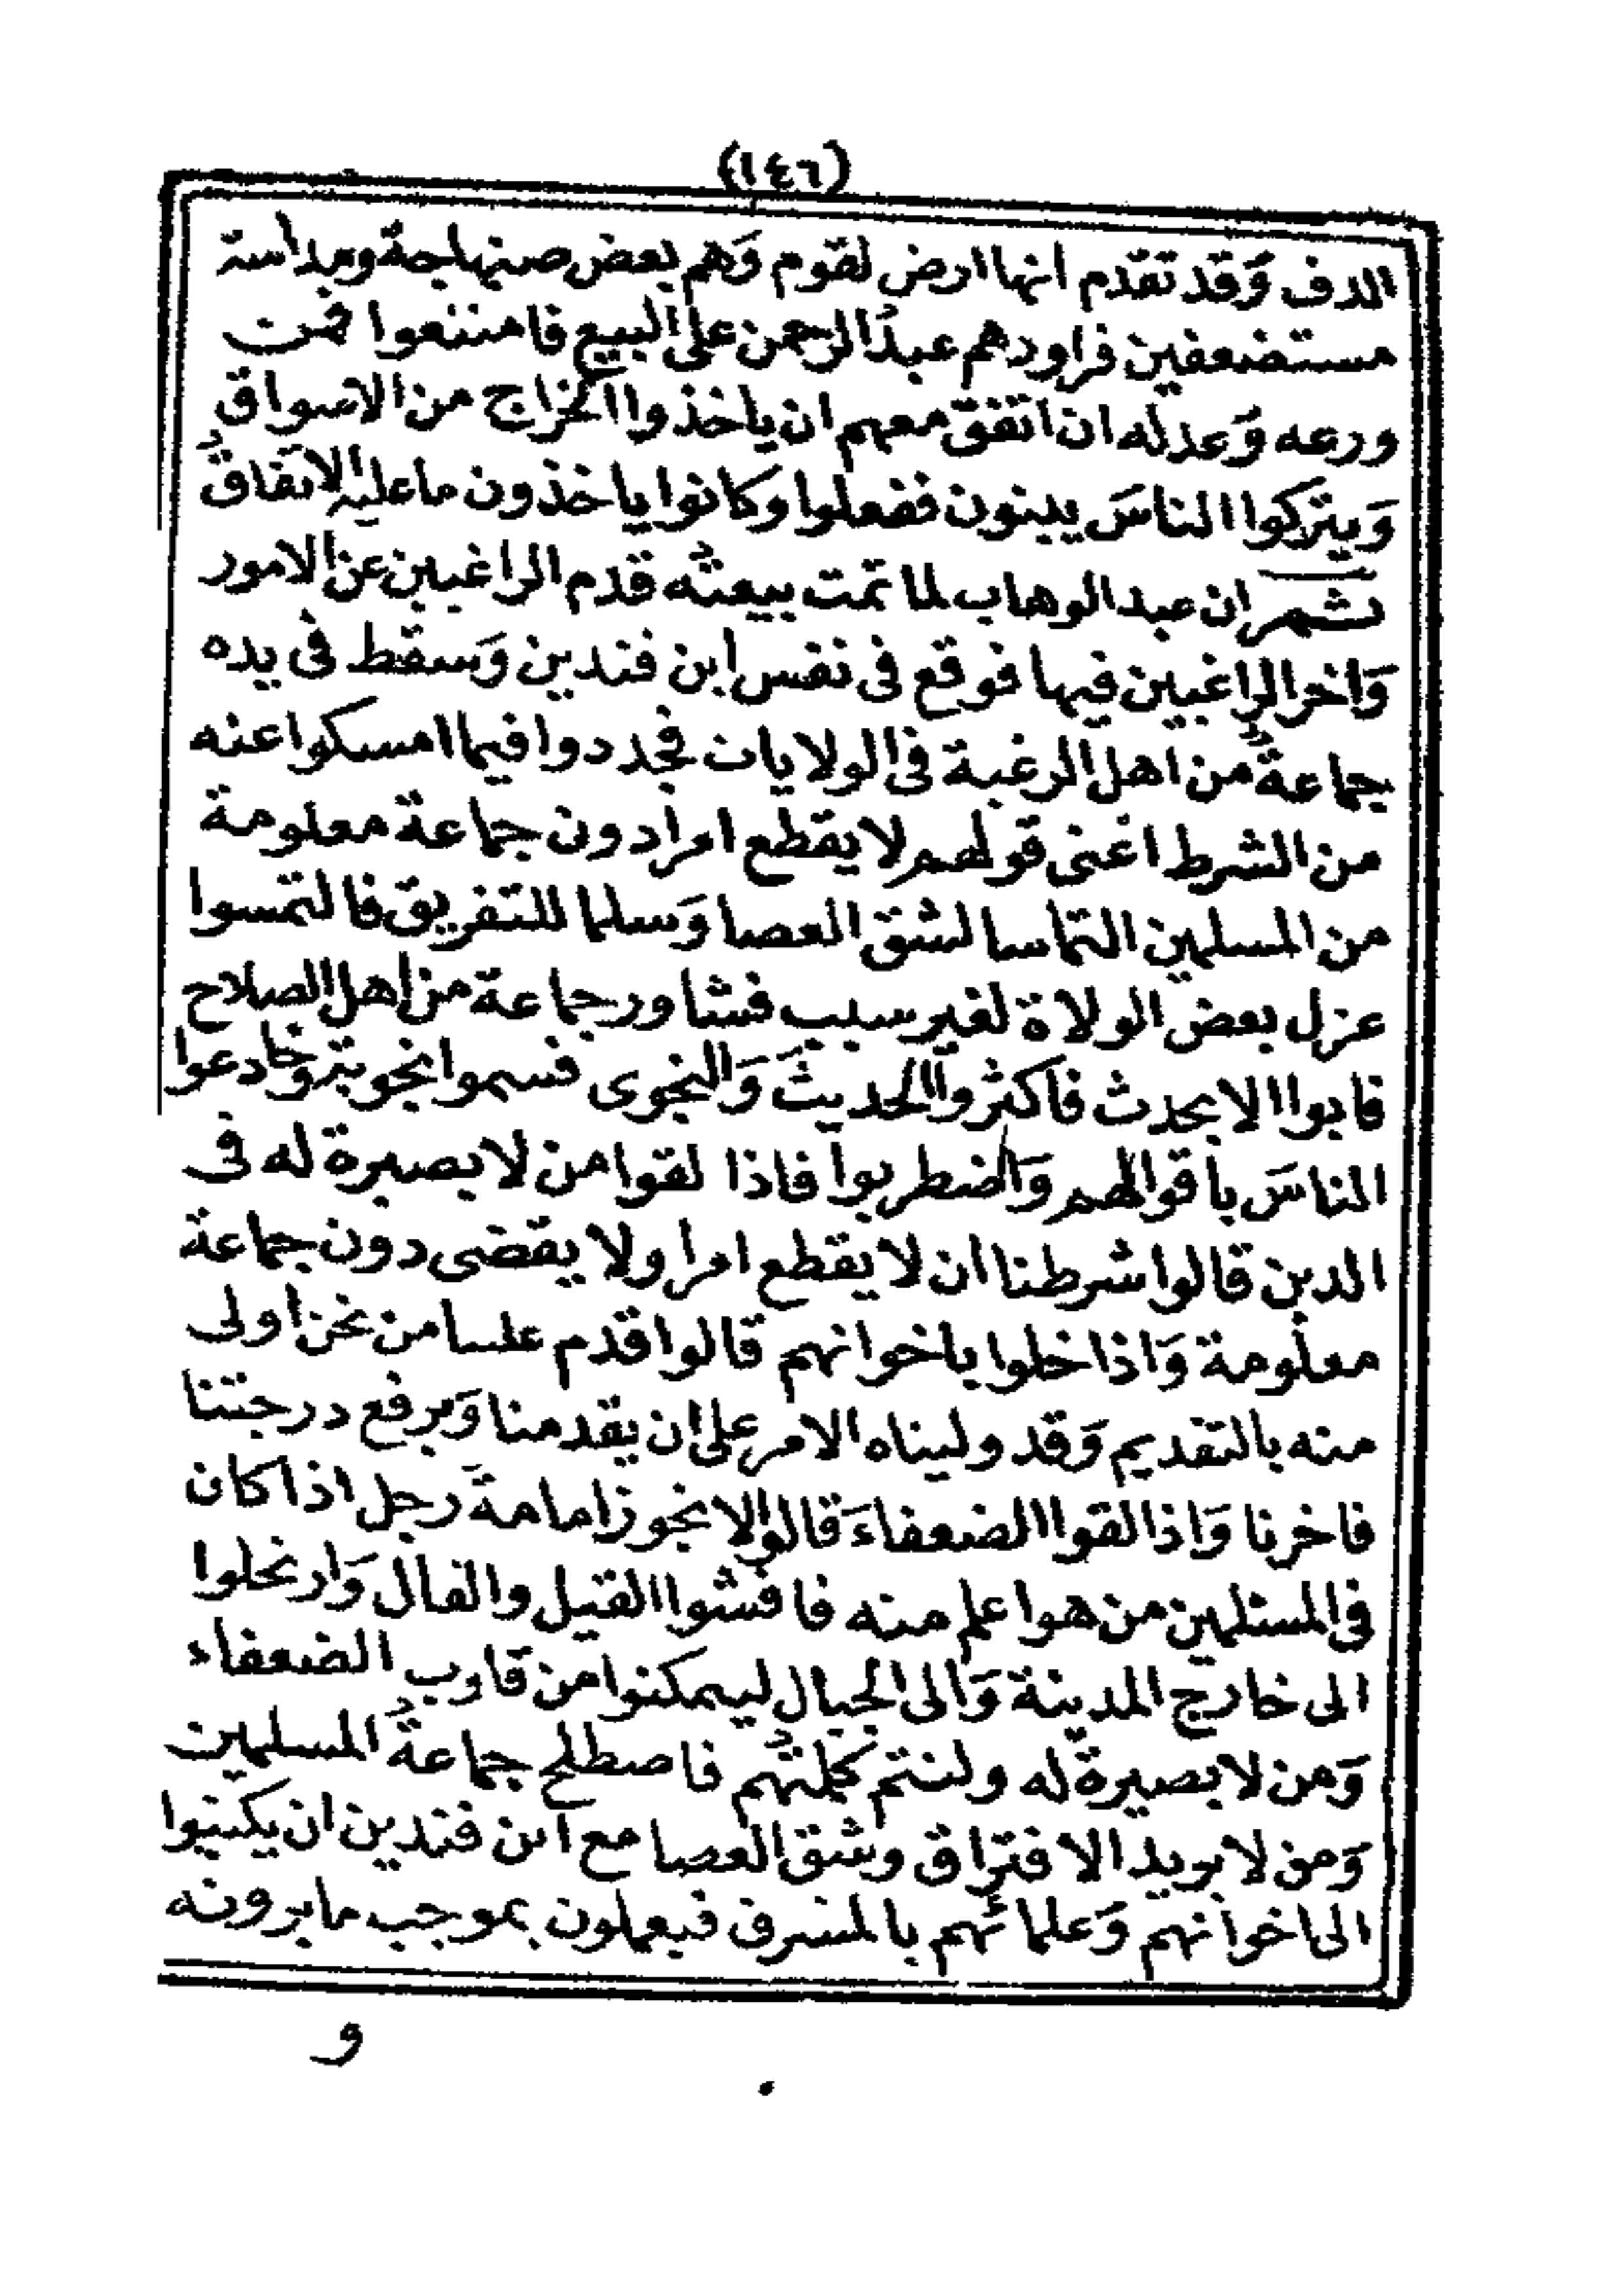 (١٤٦)
الدف وَقد تقدم انها ارض لقوم وَهم بعض صنهاجة ومداسة
مستضعفين فراودهم عبدُ الرحمن على البيع فامتنعوا فمن
ورعه وَعدله ان اتفق معهم ان ياخذوا الخراج من الاسواق
وَيتركوا الناسَ يبنون ففعلوا وكانوا ياخذون ما عليه الاتفاقُ
ثم ان عبد الوهاب لما تمت بيعتُه قدم الراغبين عن الامور
وَاخر الراغبين فيها فوقع في نفس ابن فندين وَسقط في يده
جماعةٌ من اهل الرغبة في الولايات فجددوا فيما امسكوا عنه
من الشرط اعني قولهم لا يقطع امرا دون جماعة معلومة
من المسلمين التماسا لشق العصا وَسلما للتفريق فالتمسوا
عزل بعض الولاة لغير سبب فشاور جماعة من اهل الصلاح
فابوا الا بحدث فاكثروا الحديثَ وَالنجوى فسموا نجوية وخادعوا
الناسَ باقوالهم وَاضطربوا فاذا لقوا من لا بصيرة له في
الدين قالوا شرطنا ان لا يقطع امرا ولا يقضى دون جماعة
معلومة وَاذا خلوا باخوانهم قالوا قدم علينا من نحن اولى
منه بالتقديم وَقد وليناه الامر على ان يقدمنا وَيرفع درجتنا
فاخرنا وَاذا لقوا الضعفاءَ قالوا لا تجوز امامةَ رجل اذا كان
في المسلمين من هو اعلم منه فافشوا القيل والقال وَارتحلوا
الى خارج المدينة وَالى الجبال ليمكنوا من قارب الضعفاء
وَمن لا بصيرة له ولتتم كلمتُهم فاصطلح جماعةُ المسلمين
وَمن لا يريد الافتراق وشق العصا مع ابن فندين ان يكتبوا
الى اخوانهم وَعلمائهم بالمشرق فيعملون بموجب ما يرونه
و